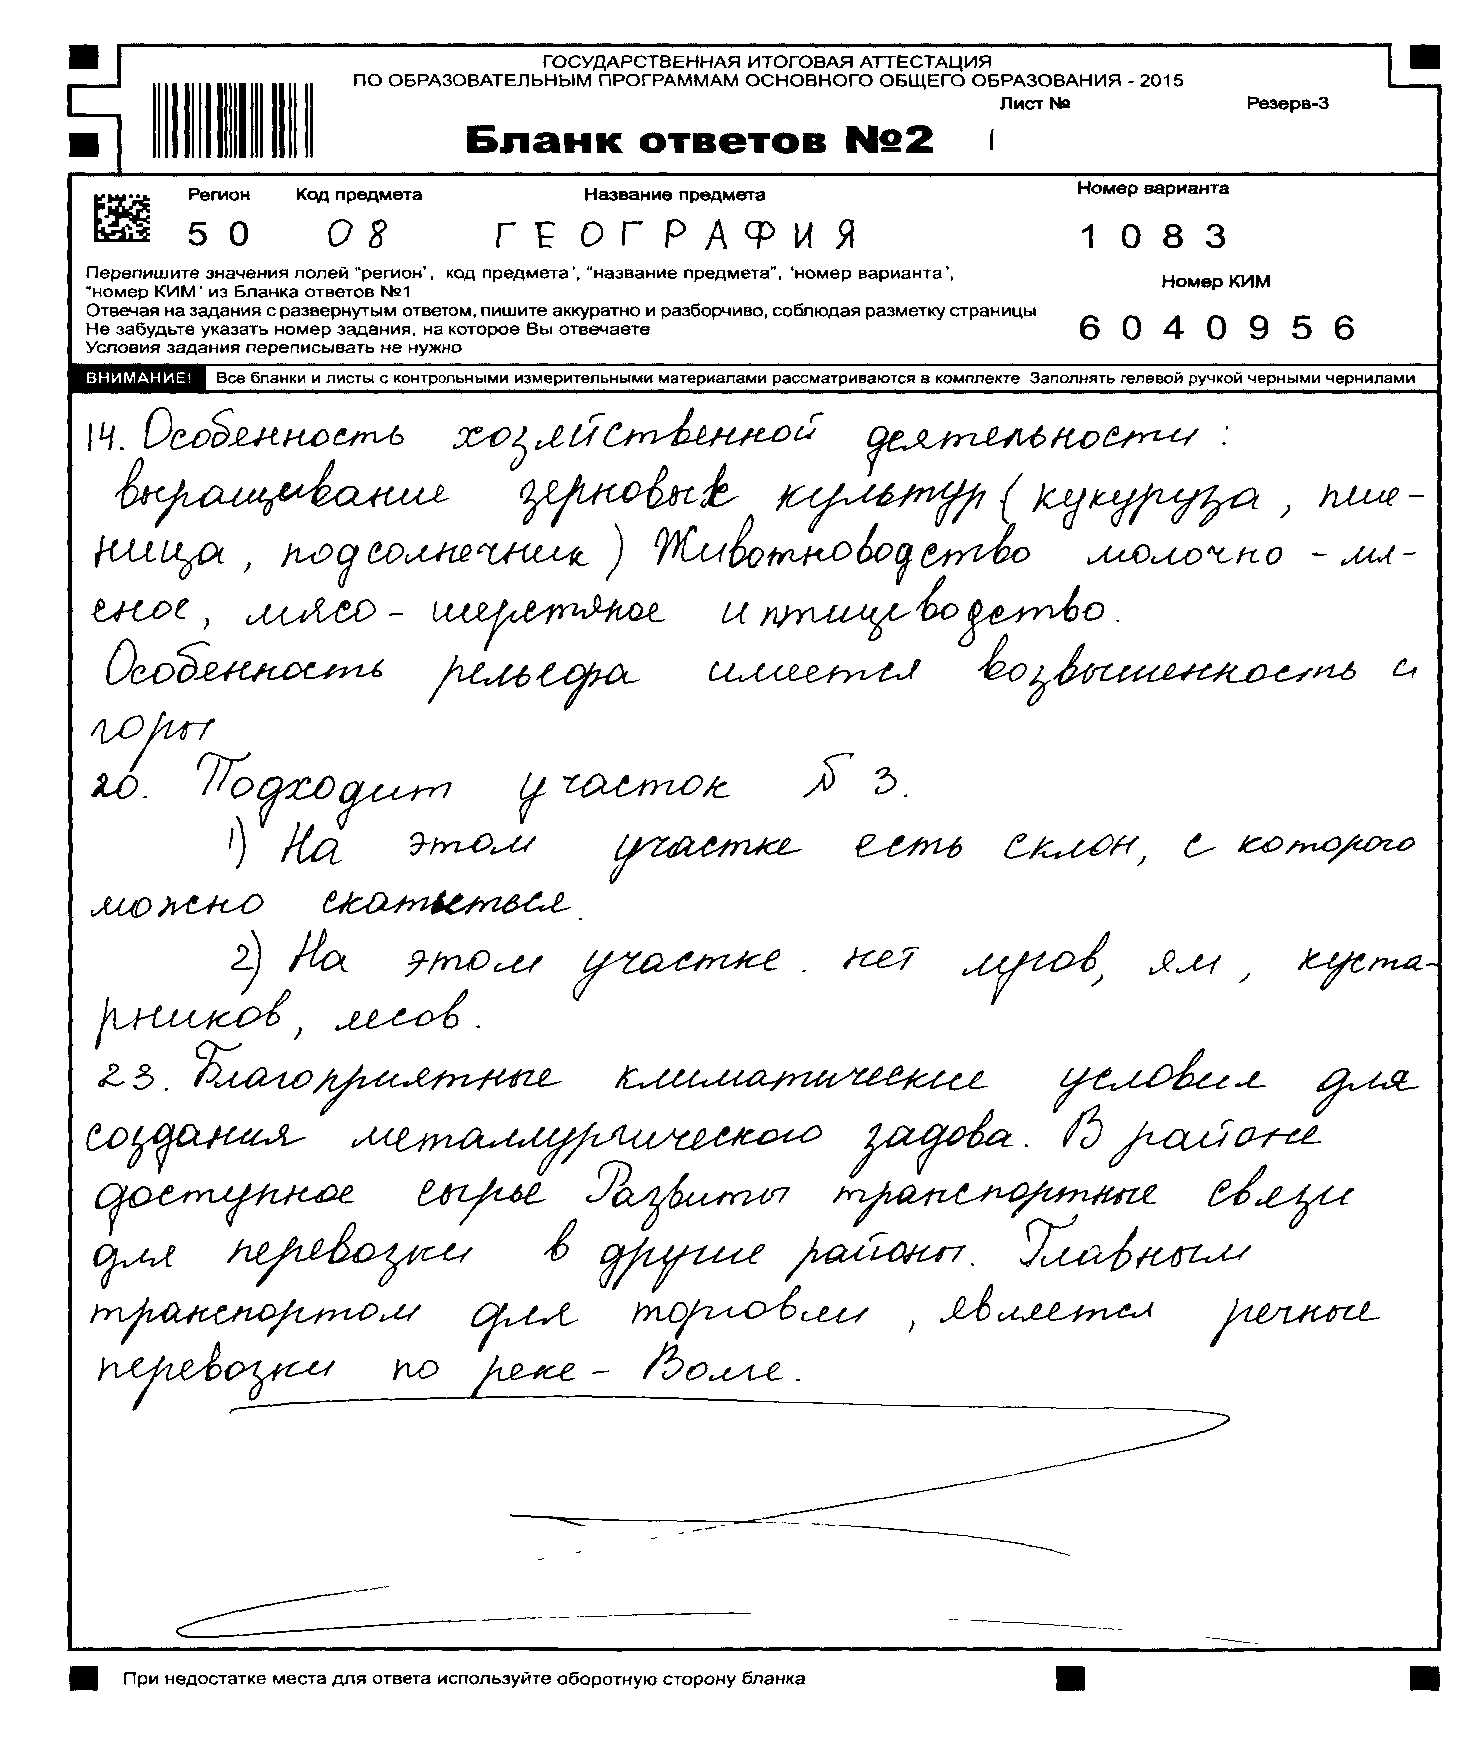 ГОСУДАРСТВЕННАЯ ИТОГОВАЯ АТТЕСТАЦИЯ
ПО ОБРАЗОВАТЕЛЬНЫМ ПРОГРАММАМ ОСНОВНОГО ОБЩЕГО ОБРАЗОВАНИЯ - 2015
Лист № Резерв-3
Бланк ответов №2 1
Регион Код предмета Название предмета Номер варианта
50 08 ГЕОГРАФИЯ 1083
Перепишите значения полей "регион", код предмета", "название предмета", "номер варианта",
"номер КИМ" из Бланка ответов №1
Номер КИМ
Отвечая на задания с развернутым ответом, пишите аккуратно и разборчиво, соблюдая разметку страницы
Не забудьте указать номер задания, на которое Вы отвечаете
Условия задания переписывать не нужно
6040956
ВНИМАНИЕ! Все бланки и листы с контрольными измерительными материалами рассматриваются в комплекте Заполнять гелевой ручкой черными чернилами
14. Особенность хозяйственной деятельности:
выращивание зерновых культур (кукуруза, пше-
ница, подсолнечник) Животноводство молочно - мя-
сное, мясо - шерстяное и птицеводство.
Особенность рельефа имеется возвышенность и
горы
20. Подходит участок № 3.
1) На этом участке есть склон, с которого
можно скатиться.
2) На этом участке нет лугов, ям, куста-
рников, лесов.
23. Благоприятные климатические условия для
создания металлургического задова. В районе
доступное сырье Развиты транспортные связи
для перевозки в другие районы. Главным
транспортом для торговли, является речные
перевозки по реке - Волге.
При недостатке места для ответа используйте оборотную сторону бланка